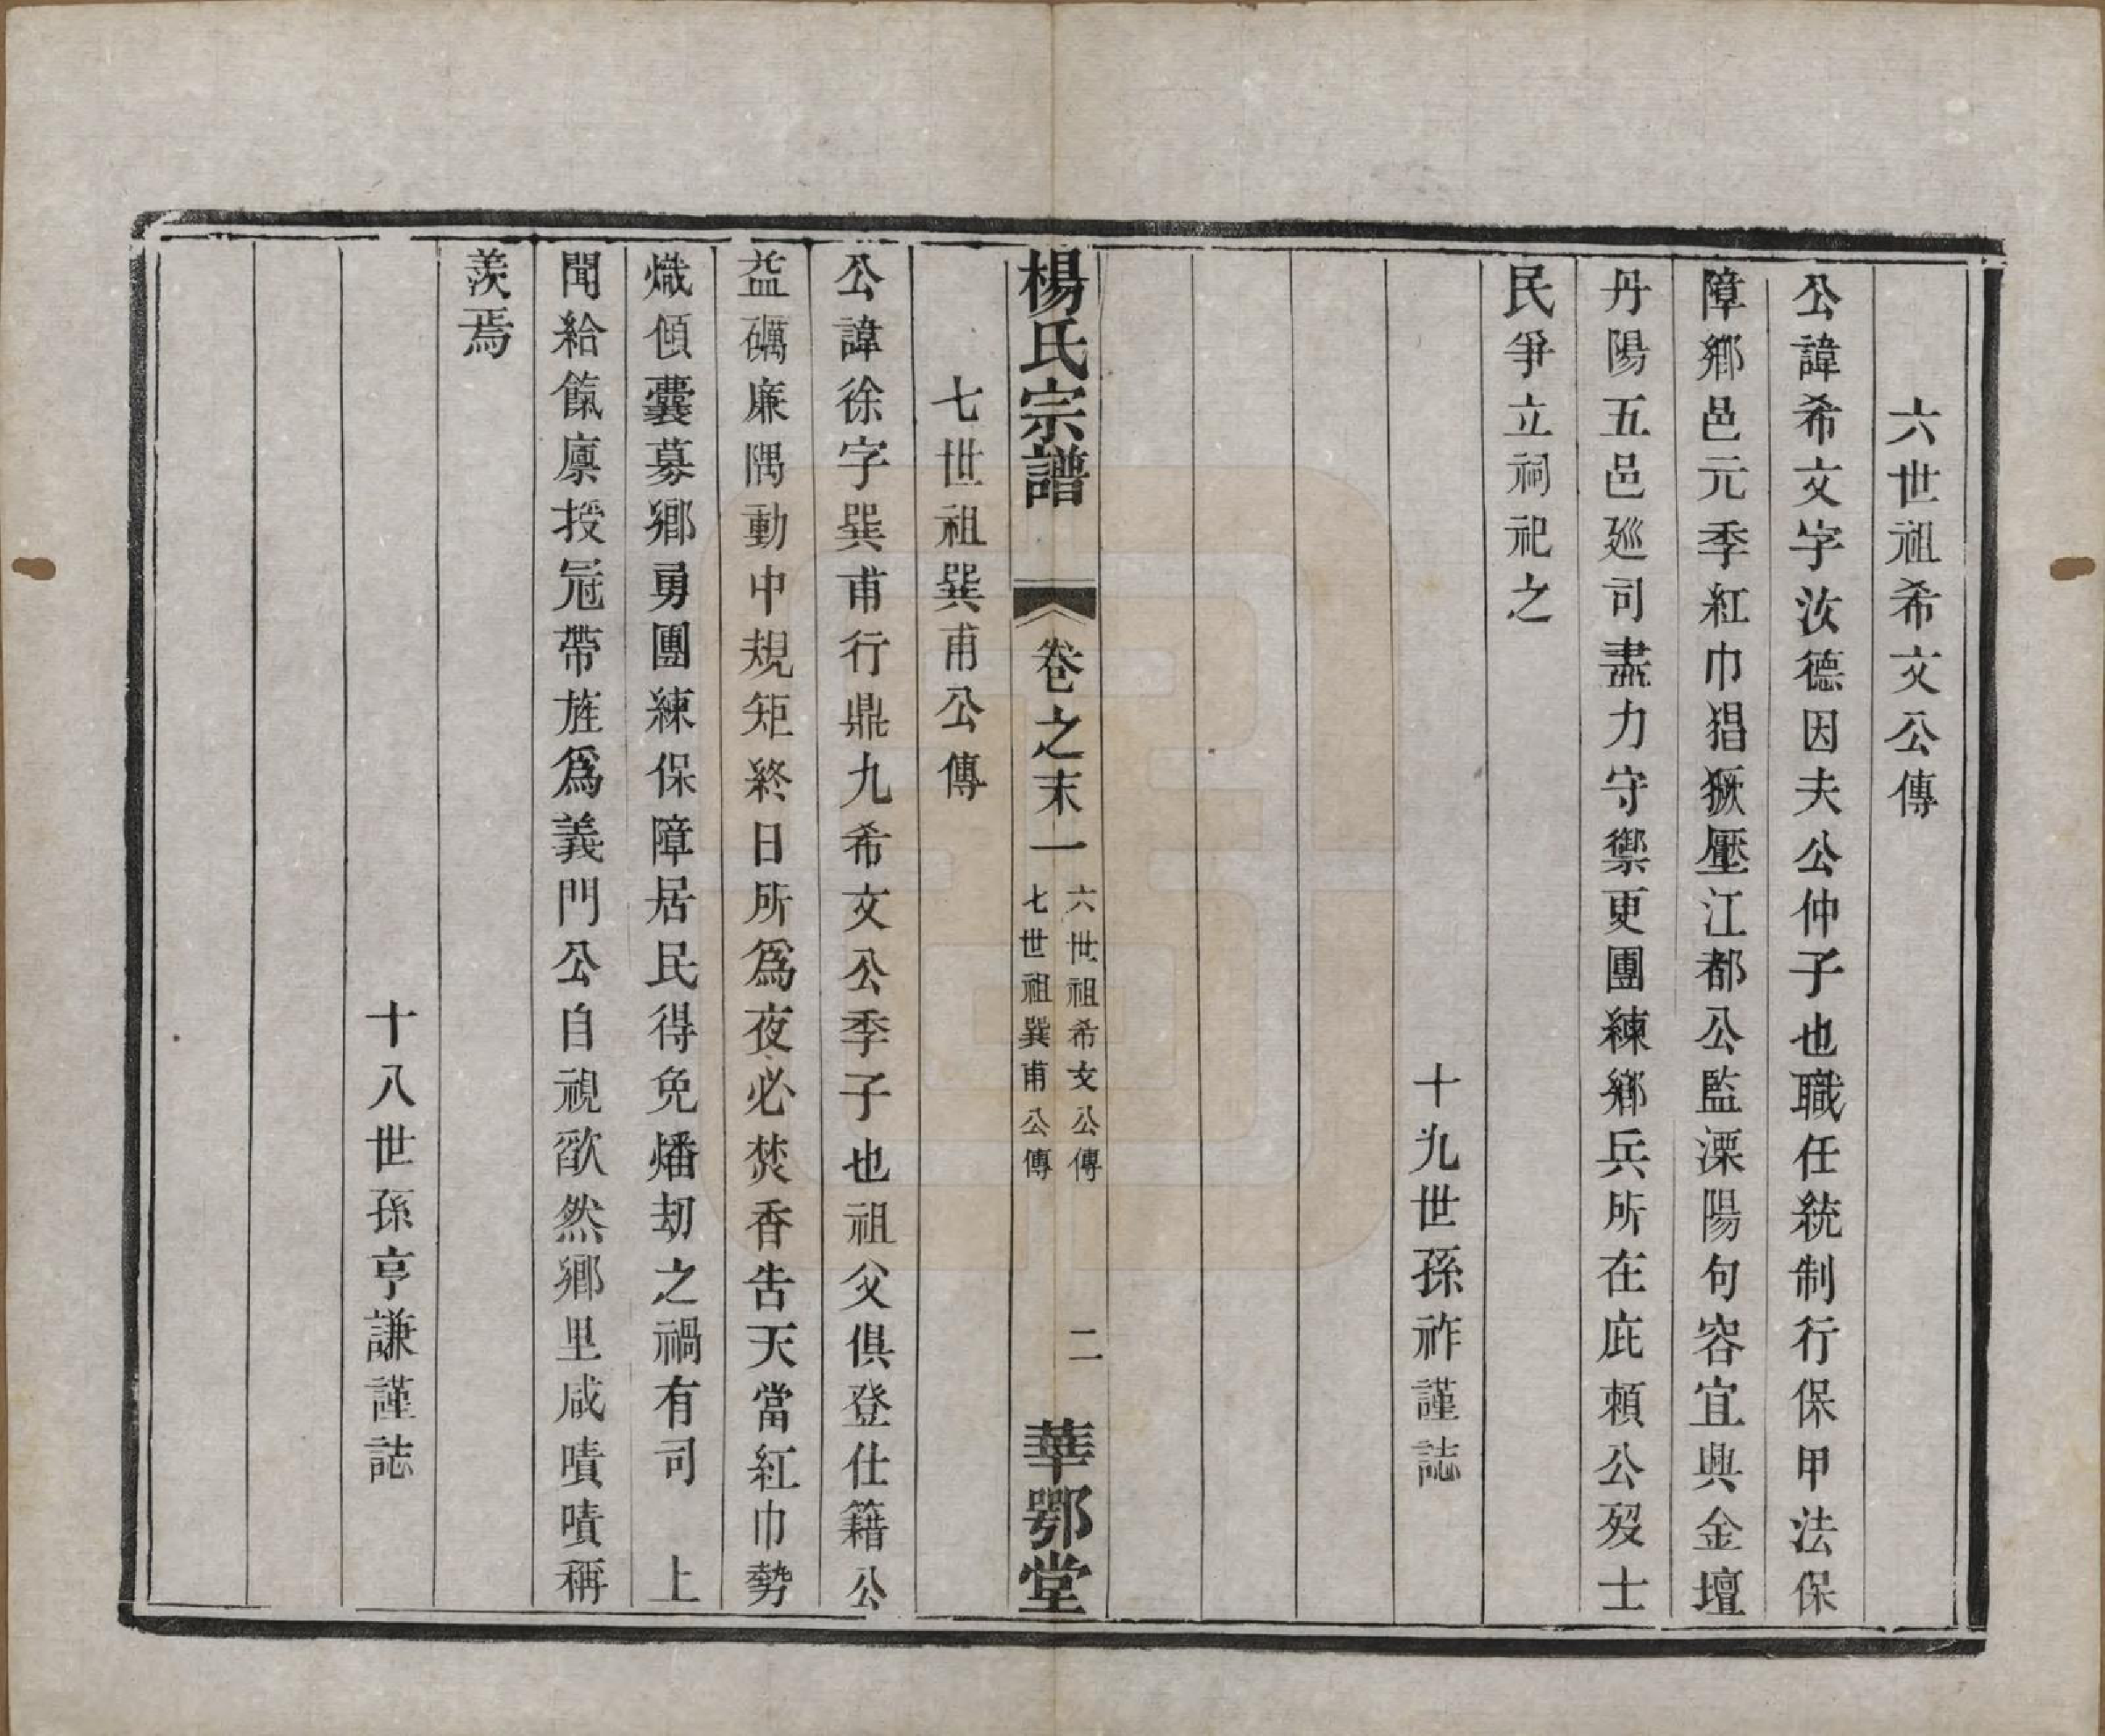 六世祖希文公傳
公諱希文字汝德因夫公仲子也職任統制行保甲法保
障鄉邑元季紅巾猖獗壓江都公監溧陽句容宜興金壇
丹陽五邑廵司盡力守禦更團練鄉兵所在庇賴公歿士
民爭立祠祀之
十九世孫祚謹誌
楊氏宗譜
卷之末一
六世祖希文公傳
七世祖巽甫公傳
二
華鄂堂
七世祖巽甫公傳
公諱徐字巽甫行鼎九希文公季子也祖父俱登仕籍公
益礪廉隅動中規矩終日所爲夜必焚香告天當紅巾勢
熾傾囊募鄉勇團練保障居民得免燔刼之禍有司　上
聞給餼廩授冠帶旌爲義門公自視欿然鄉里咸嘖嘖稱
羨焉
十八世孫亨謙謹誌